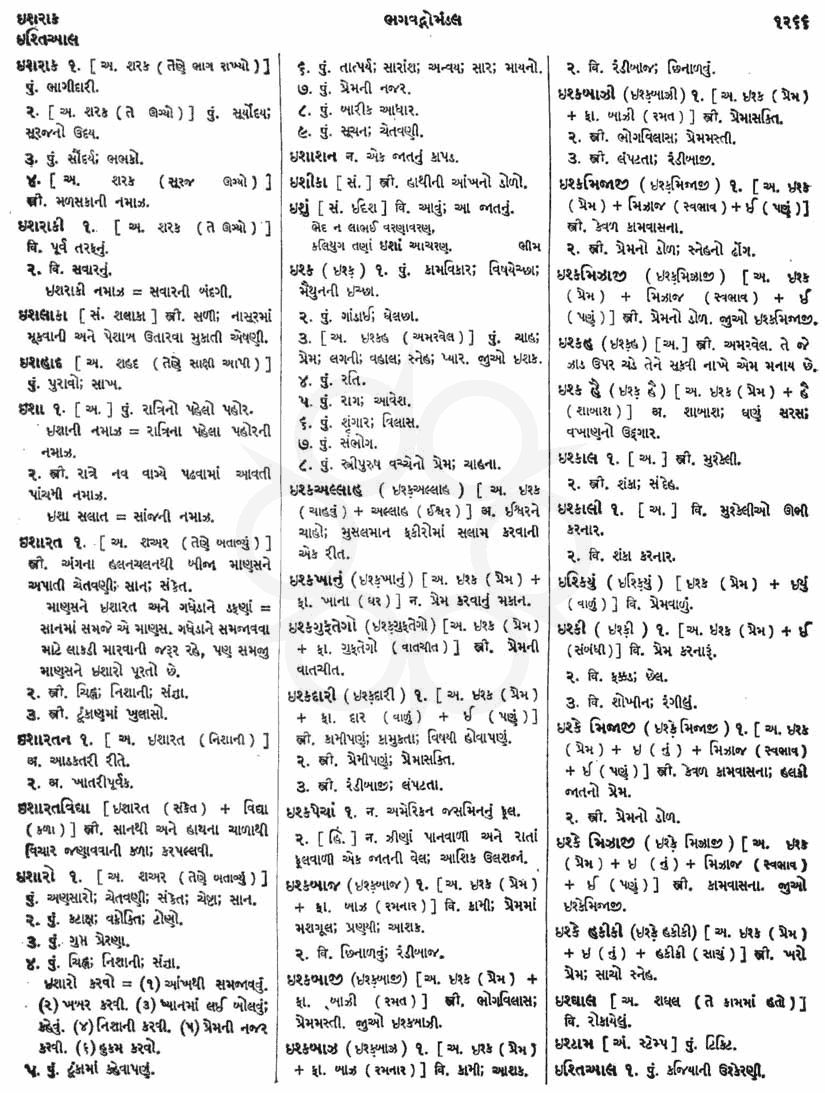 ઇશરાક
ઇસ્તિઆલ
ભગવદ્ગોમંડલ
૧૨૬૬
ઇશરાક ૧. [ અ. શરક ( તેણે ભાગ રાખ્યો ) ]
પું. ભાગીદારી.
૨. [ અ. શરક ( તે ઊગ્યો ) ] પું. સૂર્યોદય;
સૂરજનો ઉદય.
૩. પું. સૌંદર્ય; ભભકો.
૪. [ અ. શરક ( સૂરજ ઊગ્યો ) ]
સ્ત્રી. મળસકાની નમાઝ.
ઇશરાકી ૧. [ અ. શરક ( તે ઊગ્યો ) ]
વિ. પૂર્વ તરફનું.
૨. વિ. સવારનું.
ઇશરાકી નમાઝ = સવારની બંદગી.
ઇશલાકા [ સં. શલાકા ] સ્ત્રી. સળી; નાસૂરમાં
મૂકવાની અને પેશાબ ઉતારવા મુકાતી એષણી.
ઇશહાદ [ અ. શહદ ( તેણે સાક્ષી આપી ) ]
પું. પુરાવો; સાખ.
ઇશા ૧. [ અ. ] પું. રાત્રિનો પહેલો પહોર.
ઇશાની નમાઝ = રાત્રિના પહેલા પહોરની
નમાઝ.
૨. સ્ત્રી. રાત્રે નવ વાગ્યે પઢવામાં આવતી
પાંચમી નમાઝ.
ઇશા સલાત = સાંજની નમાઝ.
ઇશારત ૧. [ અ. શઅર ( તેણે બતાવ્યું ) ]
સ્ત્રી. અંગના હલનચલનથી બીજા માણસને
અપાતી ચેતવણી; સાન; સંકેત.
માણસને ઇશારત અને ગધેડાને ડફણાં =
સાનમાં સમજે એ માણસ. ગધેડાને સમજાવવા
માટે લાકડી મારવાની જરૂર રહે, પણ સમજુ
માણસને ઇશારો પૂરતો છે.
૨. સ્ત્રી. ચિહ્ન; નિશાની; સંજ્ઞા.
૩. સ્ત્રી. ટૂંકાણમાં ખુલાસો.
ઇશારતન ૧. [ અ. ઇશારત ( નિશાની ) ]
અ. આડકતરી રીતે.
૨. અ. ખાતરીપૂર્વક.
ઇશારતવિદ્યા [ ઇશારત ( સંકેત ) + વિદ્યા
( કળા ) ] સ્ત્રી. સાનથી અને હાથના ચાળાથી
વિચાર જણાવવાની કળા; કરપલ્લવી.
ઇશારો ૧. [ અ. શઅર ( તેણે બતાવ્યું ) ]
પું. અણસારો; ચેતવણી; સંકેત; ચેષ્ટા; સાન.
૨. પું. કટાક્ષ; વક્રોક્તિ; ટોણો.
૩. પું. ગુપ્ત પ્રેરણા.
૪. પું. ચિહ્ન; નિશાની; સંજ્ઞા.
ઇશારો કરવો = (૧) આંખથી સમજાવવું.
(૨) ખબર કરવી. (૩) ધ્યાનમાં લઈ બોલવું;
કહેવું. (૪) નિશાની કરવી. (૫) પ્રેમની નજર
કરવી. (૬) હુકમ કરવો.
૫. પું. ટૂંકામાં કહેવાપણું.
૬. પું. તાત્પર્ય; સારાંશ; અન્વય; સાર; માયનો.
૭. પું. પ્રેમની નજર.
૮. પું. બારીક આધાર.
૯. પું. સૂચન; ચેતવણી.
ઇશાશન ન. એક જાતનું કાપડ.
ઇશીકા [ સં. ] સ્ત્રી. હાથીની આંખનો ડોળો.
ઇશું [ સં. ઇદિશ ] વિ. આવું; આ જાતનું.
ભેદ ન લાભઈ વરણાવરણ,
કલિયુગ તણાં ઇશાં આચરણ. ભીમ
ઇશ્ક ( ઇશ્ક઼ ) ૧. પું. કામવિકાર; વિષયેચ્છા;
મૈથુનની ઇચ્છા.
૨. પું. ગાંડાઈ; ઘેલછા.
૩. [ અ. ઇશ્કહ ( અમરવેલ ) ] પું. ચાહ;
પ્રેમ; લગની; વહાલ; સ્નેહ; પ્યાર. જીઓ ઇશક.
૪. પું. રતિ.
૫. પું. રાગ; આવેશ.
૬. પું. શૃંગાર; વિલાસ.
૭. પું. સંભોગ.
૮. પું. સ્ત્રીપુરુષ વચ્ચેનો પ્રેમ; ચાહના.
ઇશ્કઅલ્લાહ ( ઇશ્ક઼અલ્લાહ ) [ અ. ઇશ્ક
( ચાહવું ) + અલ્લાહ ( ઈશ્વર ) ] અ. ઈશ્વરને
ચાહો; મુસલમાન ફકીરોમાં સલામ કરવાની
એક રીત.
ઇશ્કખાનું ( ઇશ્ક઼ખાનું ) [ અ. ઇશ્ક ( પ્રેમ ) +
ફા. ખાના ( ઘર ) ] ન. પ્રેમ કરવાનું મકાન.
ઇશ્કગુફતેગો (ઇશ્ક઼ગુફતેગો) [ અ. ઇશ્ક (પ્રેમ)
+ ફા. ગુફતેગો ( વાતચીત ) ] સ્ત્રી. પ્રેમની
વાતચીત.
ઇશ્કદારી ( ઇશ્ક઼દારી ) ૧. [ અ. ઇશ્ક ( પ્રેમ )
+ ફા. દાર ( વાળું ) + ઈ ( પણું ) ]
સ્ત્રી. કામીપણું; કામુકતા; વિષયી હોવાપણું.
૨. સ્ત્રી. પ્રેમીપણું; પ્રેમાસક્તિ.
૩. સ્ત્રી. રંડીબાજી; લંપટતા.
ઇશ્કપેચાં ૧. ન. અમેરિકન જસમિનનું ફૂલ.
૨. [ હિં. ] ન. ઝીણાં પાનવાળી અને રાતાં
ફૂલવાળી એક જાતની વેલ; આશિક ઉલશર્જા.
ઇશ્કબાજ ( ઇશ્ક઼બાજ ) ૧. [ અ. ઇશ્ક ( પ્રેમ )
+ ફા. બાઝ ( રમનાર ) ] વિ. કામી; પ્રેમમાં
મશગૂલ; પ્રણયી; આશક.
૨. વિ. છિનાળવું; રંડીબાજ.
ઇશ્કબાજી (ઇશ્ક઼બાજી) [ અ. ઇશ્ક ( પ્રેમ ) +
ફા. બાઝી ( રમત ) ] સ્ત્રી. ભોગવિલાસ;
પ્રેમમસ્તી. જીઓ ઇશ્કબાઝી.
ઇશ્કબાઝ ( ઇશ્ક઼બાઝ ) ૧. [ અ. ઇશ્ક ( પ્રેમ )
+ ફા. બાઝ ( રમનાર ) ] વિ. કામી; આશક.
૨. વિ. રંડીબાજ; છિનાળવું.
ઇશ્કબાઝી ( ઇશ્ક઼બાઝી ) ૧. [ અ. ઇશ્ક ( પ્રેમ )
+ ફા. બાઝી ( રમત ) ] સ્ત્રી. પ્રેમાસક્તિ.
૨. સ્ત્રી. ભોગવિલાસ; પ્રેમમસ્તી.
૩. સ્ત્રી. લંપટતા; રંડીબાજી.
ઇશ્કમિજાજી ( ઇશ્ક઼મિજાજી ) ૧. [ અ. ઇશ્ક
( પ્રેમ ) + મિઝાજ ( સ્વભાવ ) + ઈ ( પણું ) ]
સ્ત્રી. કેવળ કામવાસના.
૨. સ્ત્રી. પ્રેમનો ડોળ; સ્નેહનો ઢોંગ.
ઇશ્કમિઝાજી ( ઇશ્ક઼મિઝાજી ) [ અ. ઇશ્ક
( પ્રેમ ) + મિઝાજ ( સ્વભાવ ) + ઈ
( પણું ) ] સ્ત્રી. પ્રેમનો ડોળ. જીઓ ઇશ્કમિજાજી.
ઇશ્કહ ( ઇશ્ક઼હ ) [ અ. ] સ્ત્રી. અમરવેલ. તે જે
ઝાડ ઉપર ચડે તેને સૂકવી નાખે એમ મનાય છે.
ઇશ્ક હૈ ( ઇશ્ક઼ હૈ ) [ અ. ઇશ્ક ( પ્રેમ ) + હૈ
( શાબાશ ) ] અ. શાબાશ; ઘણું સરસ;
વખાણનો ઉદ્ગાર.
ઇશ્કાલ ૧. [ અ. ] સ્ત્રી. મુશ્કેલી.
૨. સ્ત્રી. શંકા; સંદેહ.
ઇશ્કાલી ૧. [ અ. ] વિ. મુશ્કેલીઓ ઊભી
કરનાર.
૨. વિ. શંકા કરનાર.
ઇશ્કિયું ( ઇશ્કિ઼યું ) [ ઇશ્ક ( પ્રેમ ) + ઇયું
( વાળું ) ] વિ. પ્રેમવાળું.
ઇશ્કી ( ઇશ્ક઼ી ) ૧. [ અ. ઇશ્ક ( પ્રેમ ) + ઈ
( સંબંધી ) ] વિ. પ્રેમ કરનારૂં.
૨. વિ. ફક્કડ; છેલ.
૩. વિ. શોખીન; રંગીલું.
ઇશ્કે મિજાજી ( ઇશ્ક઼ે મિજાજી ) ૧. [ અ. ઇશ્ક
( પ્રેમ ) + ઇ ( નું ) + મિઝાજ ( સ્વભાવ )
+ ઈ ( પણું ) ] સ્ત્રી. કેવળ કામવાસના; હલકી
જાતનો પ્રેમ.
૨. સ્ત્રી. પ્રેમનો ડોળ.
ઇશ્કે મિઝાજી ( ઇશ્ક઼ે મિઝાજી ) [ અ. ઇશ્ક
( પ્રેમ ) + ઇ ( નું ) + મિઝાજ ( સ્વભાવ )
+ ઈ ( પણું ) ] સ્ત્રી. કામવાસના. જીઓ
ઇશ્કેમિજાજી.
ઇશ્કે હકીકી (ઇશ્ક઼ે હકીકી) [ અ. ઇશ્ક ( પ્રેમ )
+ ઇ ( નું ) + હકીકી ( સાચું ) ] સ્ત્રી. ખરો
પ્રેમ; સાચો સ્નેહ.
ઇશ્ઘાલ [ અ. શઘલ ( તે કામમાં હતો ) ]
વિ. રોકાયેલું.
ઇશ્ટામ [ અં. સ્ટેમ્પ ] પું. ટિકિટ.
ઇશ્તિઆલ ૧. પું. કજિયાની ઉશ્કેરણી.